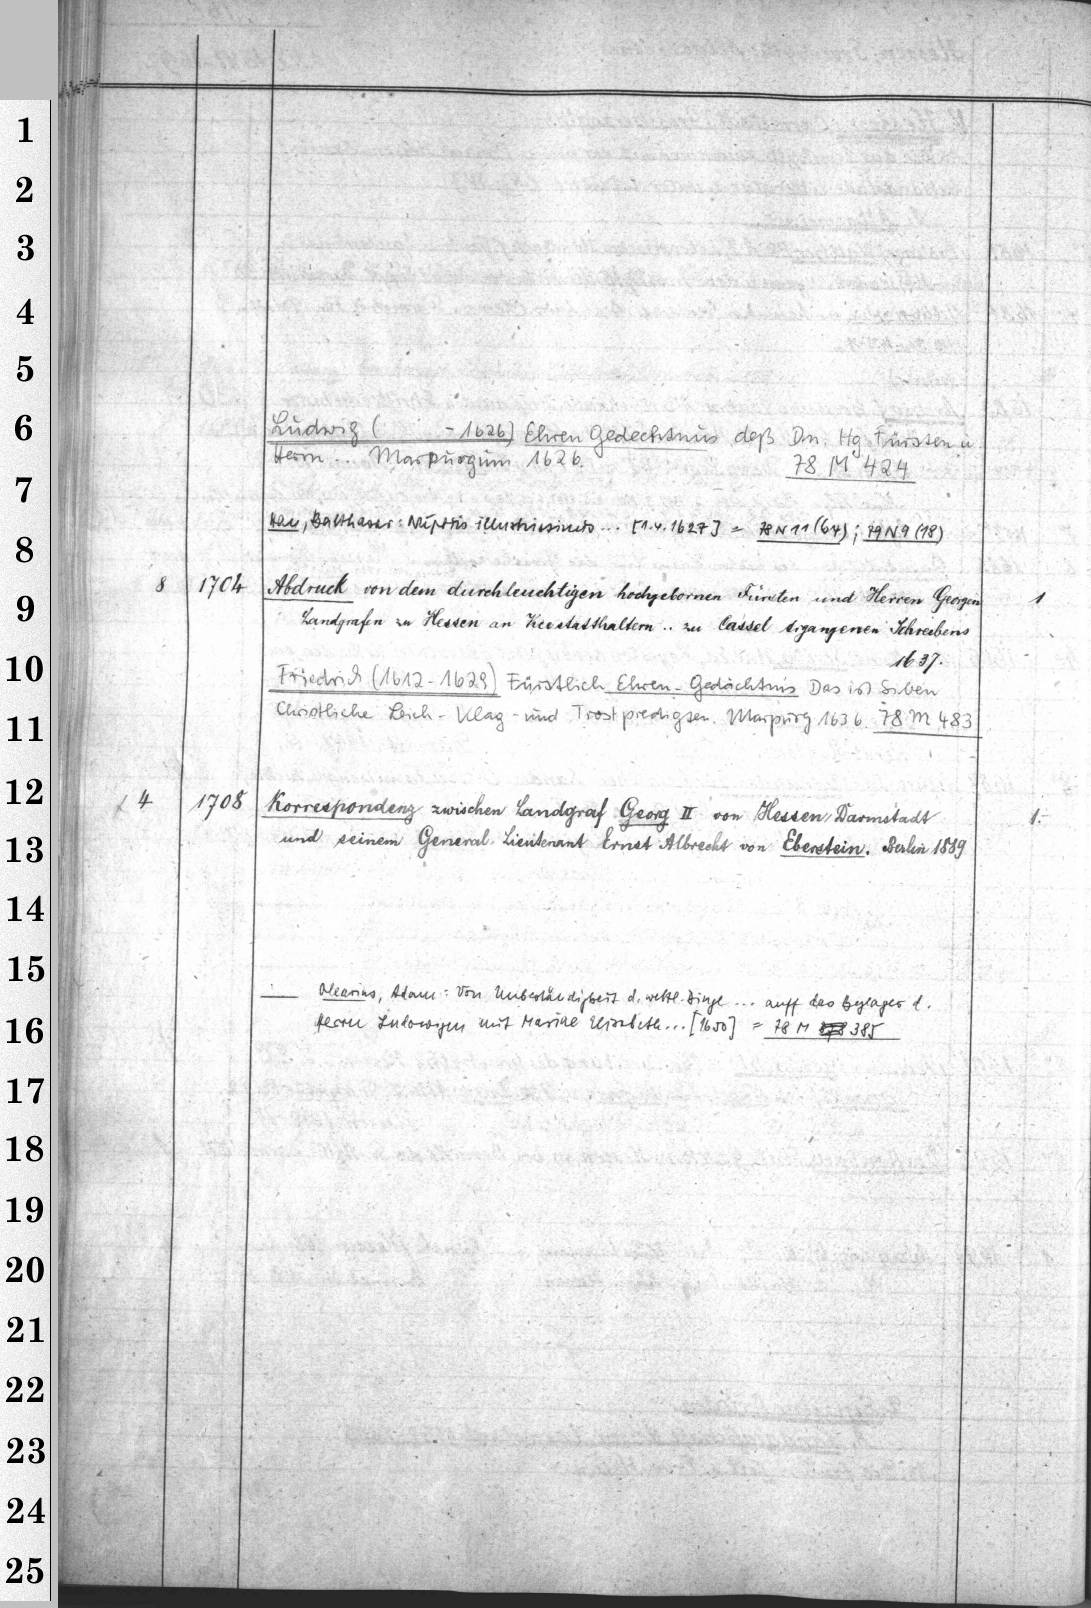 1
2
3
4
5
6
Ludwig ( - 1626) Ehren Gedechtnus deß Dn. Hg Fürsten u.
Herrn ... Marpurgum 1626. 78 M 424
7
Balthasar: illustrissimis ... [1.4.1627] = 78 N 11 (64); 79 N 9 (18)
8
8 1704 Abdruck von dem durchleuchtigen hochgebornen Fürsten und Herren Georgen 1
9
Landgrafen zu Hessen an .. zu Cassel ergangenen Schreibens
1637.
10
Friedrich (1612-1629) Fürstlich Ehren-Gedächtnis Das ist Siben
Christliche Leich- Klag- und Trostpredigten. Marpurg 1636. 78 M 483
11
12
4 1708 Korrespondenz zwischen Landgraf Georg II von Hessen Darmstadt 1.-
13
und seinem General-Lieutenant Ernst Albrecht von Eberstein. Berlin 1889
14
15
Olearius, Adam: Von Unbeständigkeit d. weltl. Dinge ... auff das Beylager d.
16
Herrn Ludowigen mit Mariae Elisabeth ... [1650] = 78 M 385
17
18
19
20
21
22
23
24
25